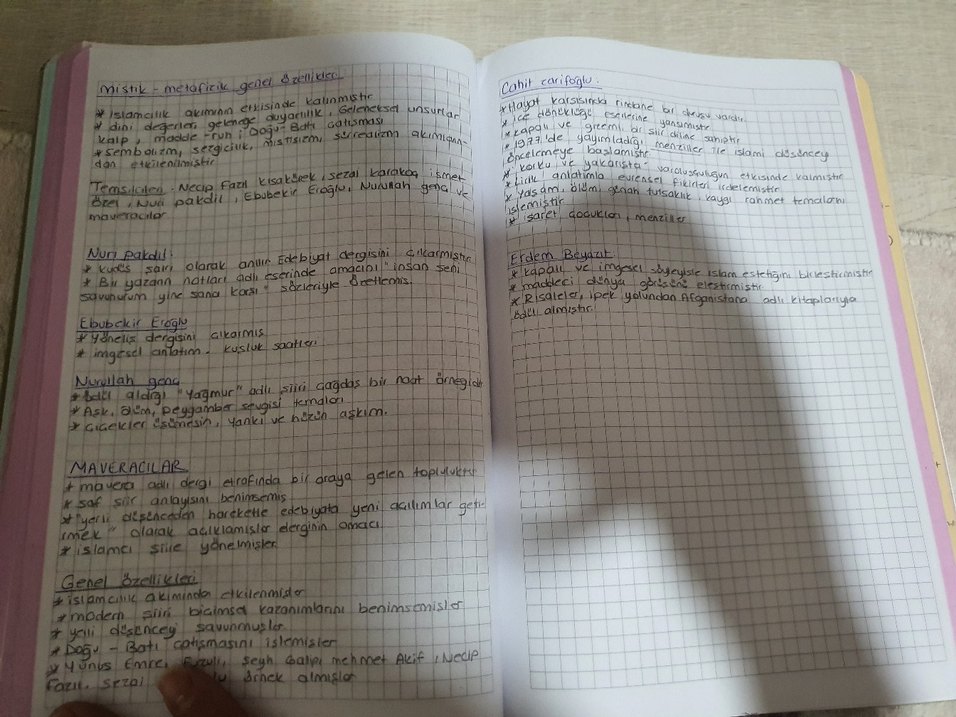 mistik - metafizik genel özellikler
* islamcılık akımının etkisinde kalınmıştır
* dini değerler, geleneğe duyarlılık, Geleneksel unsurlar
kalp, madde - ruh, Doğu - Batı çatışması
* sembolizm, sezgicilik, mistisizm, sürrealizm akımların-
dan etkilenilmiştir
Temsilcileri - Necip Fazıl Kısakürek, sezai karakoç, ismet
özel, Nuri pakdil, Ebubekir Eroğlu, Nurullah genç ve
maveracılar
Nuri Pakdil:
* kudüs şairi olarak anılır. Edebiyat dergisini çıkarmıştır
* Bir yazarın notları adlı eserinde amacını "insan seni
savunurum yine sana karşı" sözleriyle özetlemiş.
Ebubekir Eroğlu
* Yöneliş dergisini çıkarmış
* imgesel anlatım. kuşluk saatleri
Nurullah genç
* ödül aldığı "Yağmur" adlı şiiri çağdaş bir naat örneğidir
* Aşk, ölüm, peygamber sevgisi temaları
* çiçekler üşümesin, yankı ve hüzün aşkım.
MAVERACILAR
* mavera adlı dergi etrafında bir araya gelen topluluktur
* saf şiir anlayışını benimsemiş
* "yerli düşünceden hareketle edebiyata yeni açılımlar geti-
rmek" olarak açıklamışlar derginin amacı
* islamcı şiire yönelmişler
Genel özellikleri
* islamcılık akımından etkilenmişler
* modern şiiri biçimsel kazanımlarını benimsemişler
* yerli düşünceyi savunmuşlar
* Doğu - Batı çatışmasını işlemişler
* Yunus Emre, Fuzuli, Şeyh Galip, mehmet Akif, Necip
Fazıl, sezai örnek almışlar
Cahit zarifoğlu:
* Hayat karşısında rindane bir duruşu vardır.
* içe dönüklüğü eserlerine yansımıştır
* kapalı ve gizemli bir şiir diline sahiptir
* 1977'de yayımladığı menziller ile islami düşünceyi
öncelemeye başlamıştır
* korku ve yakarışta varoluşçuluğun etkisinde kalmıştır
* Lirik anlatımla evrensel fikirleri irdelemiştir
* Yaşam, ölüm, günah tutsaklık, kaygı rahmet temalarını
işlemiştir
* işaret çocukları, menziller
Erdem Beyazıt
* kapalı ve imgesel söyleyişle islam estetiğini birleştirmiştir
* maddeci dünya görüşünü eleştirmiştir
* Risaleler, ipek yolundan Afganistana adlı kitaplarıyla
ödül almıştır